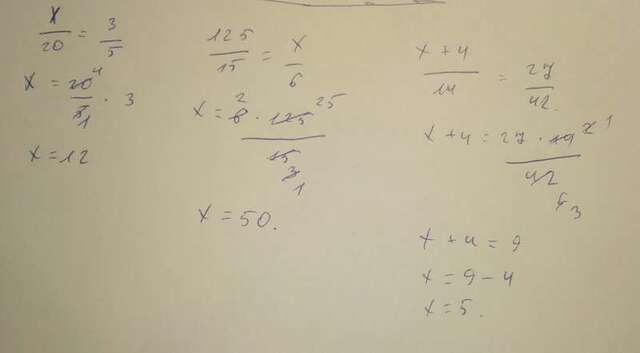 x/20 = 3/5
x = 20 4/5 1 · 3
x = 12
125/15 = x/6
x = 6 2 · 125 25/15 3 1
x = 50.
x + 4/14 = 27/42.
x + 4 = 27 · 14 2 1/42 6 3
x + 4 = 9
x = 9 - 4
x = 5.